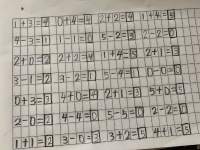 1+3=4 0+4=4 2+2=4 1+4=5
4-3=1 1-1=0 5-2=3 2-2=0
2+0=2 2+0=2 1+4=5 2+1=3
3-1=2 3-2=1 5-4=1 0-0=0
0+3=3 4+0=4 2+1=3 5+0=5
2-0=2 4-4=0 5-5=0 2-2=0
1+1=2 3-0=3 3+2=5 4+1=5